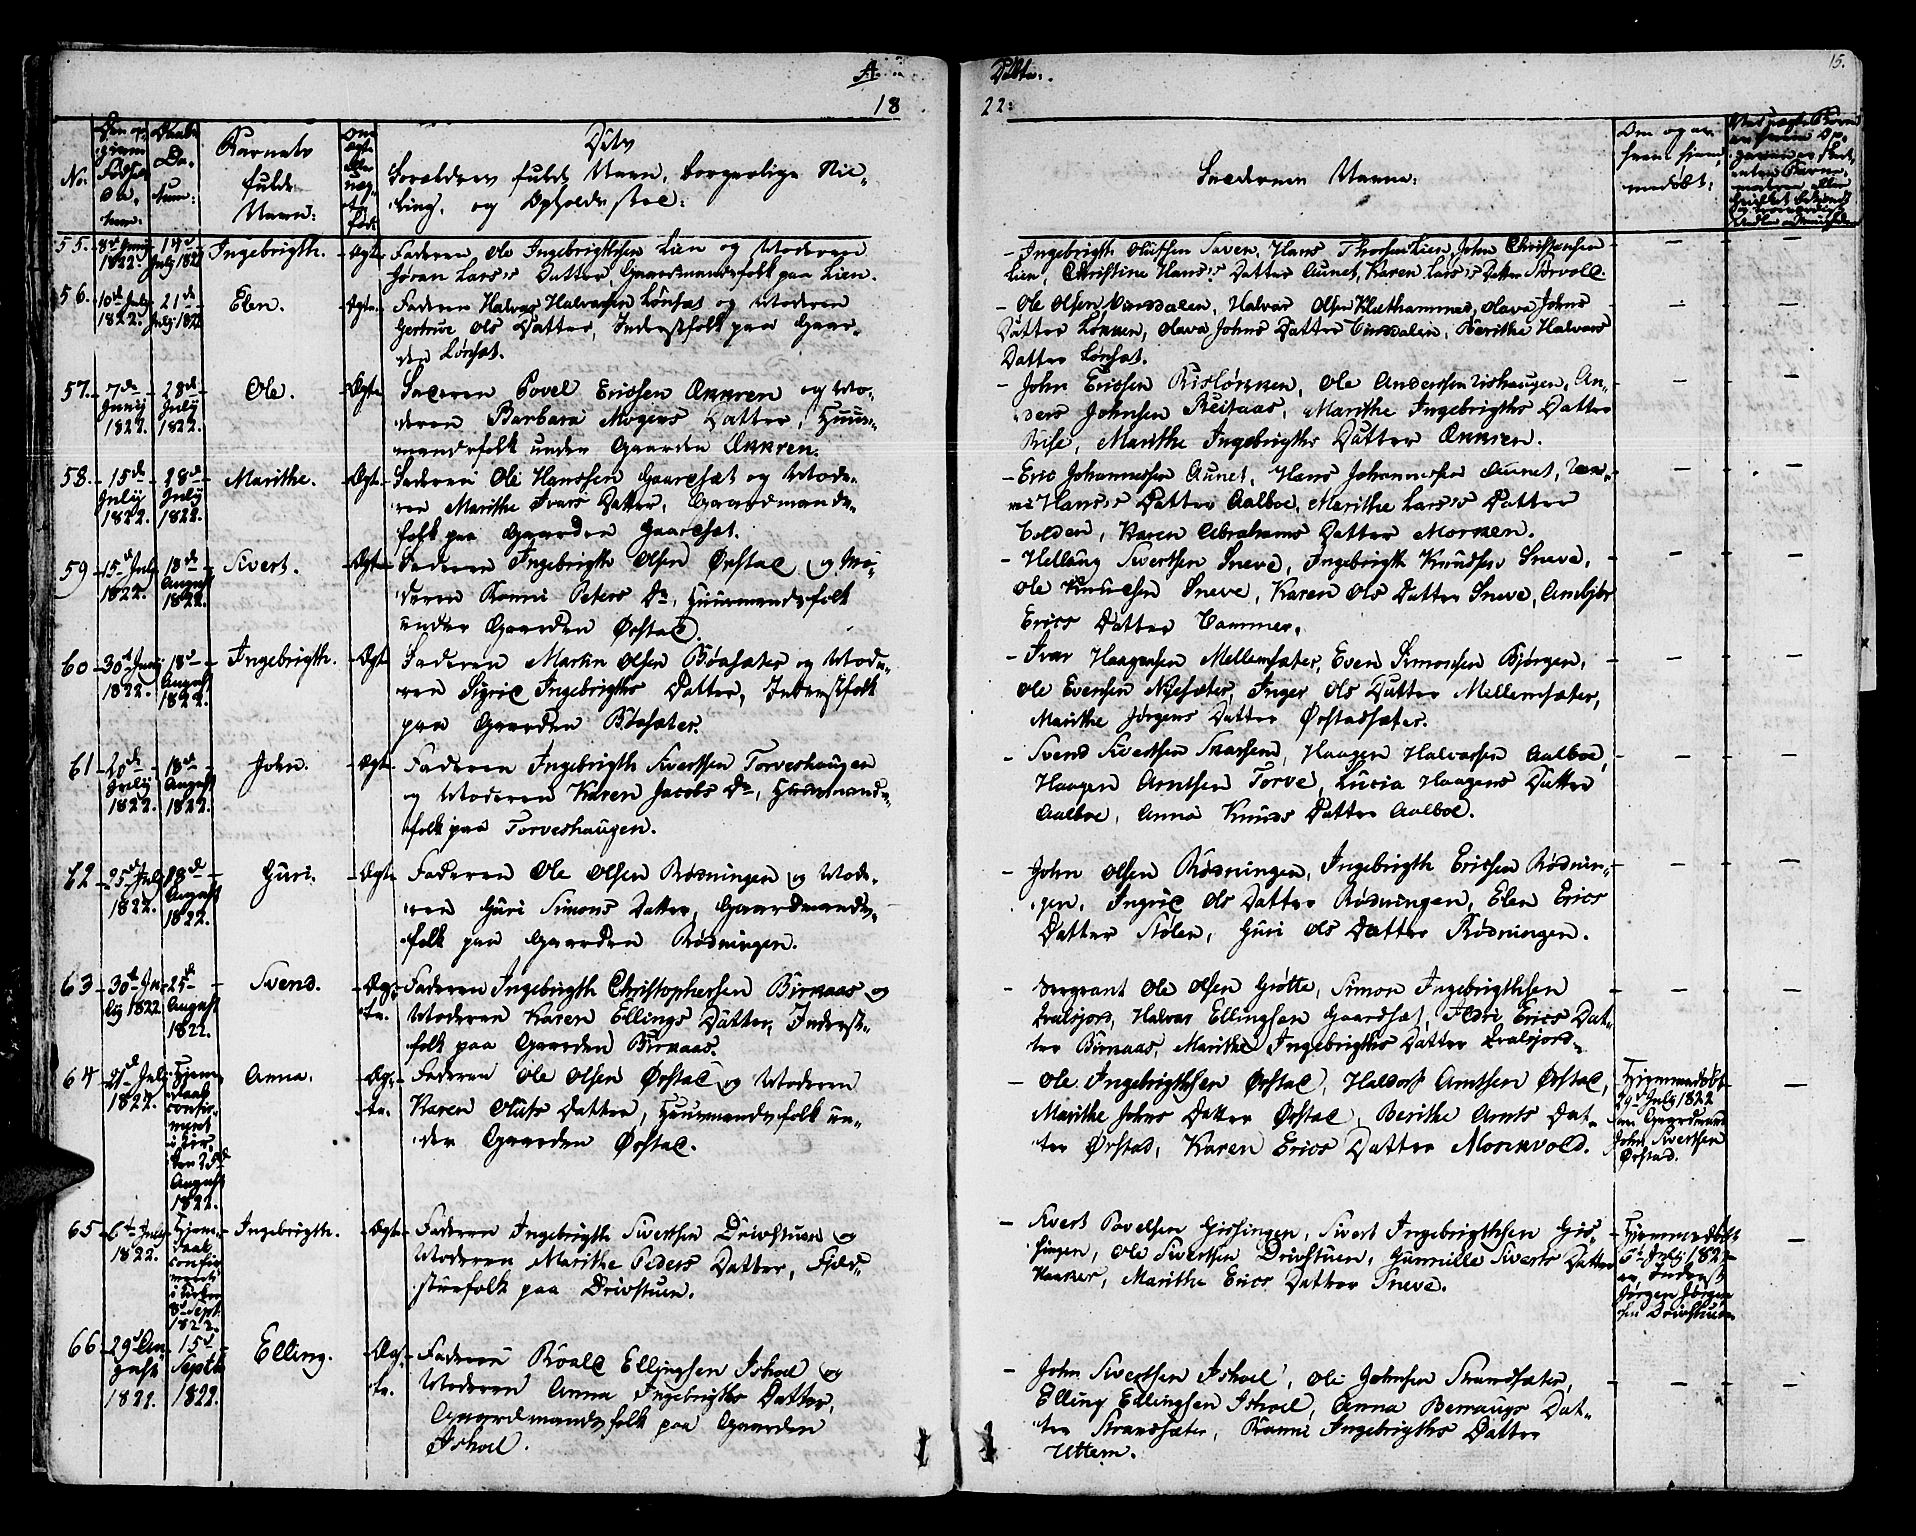 A. Døbte.
15.
18 22:
No.
Barnets fulde Navn:
Forældrenes fulde Navn, borgerlige Stilling, og Opholdssted:
Faddernes Navne:
55. 8d Juny 1822. 14d July 1822 Ingebrigth. Ægte Faderen Ole Ingebrigthsen Lien og Moderen
Jøran Lars's Datter, Gaardmandsfolk paa Lien.
Ingebrigth Olufsen Lien, John Christensen
Lien, Christine Hans's Datter Aunet, Karen Lars's Datter
56. 10d July 1822. 21d July 1822 Elen. Ægte Faderen Halvar Halvarsen Lønset og Moderen
Gertrue Ols Datter, Inderstfolk paa Gaar-
den Lønset.
Ole Olsen Vinddalen, Halvar Olsen Klethammer, Olava Johns
Datter Lønnen, Olava Johns Datter Vinddalen, Berithe Halvars
Datter Lønset.
57. 7de Juny 1822. 28d July 1822. Ole. Ægte Faderen Povel Ericsen Ænnren og Mo-
deren Barbara Mogens Datter, Huus-
mandsfolk under Gaarden Ænnren.
John Ericsen Rislønnen, Ole Anderssen Rishaugen, An-
ders Johnsen Reitaas, Marithe Ingebrigths Datter
Rise, Marithe Ingebrigths Datter Ænnren.
58. 15d July 1822. 28d July 1822. Marithe. Ægte Faderen Ole Hanssen Gaardset og Mode-
ren Marithe Ivars Datter, Gaardmands-
folk paa Gaarden Gaardset.
Eric Johannessen Aunet, Hans Johannessen Aunet,
Hans's Datter Aalboe, Marithe Lars's Datter
Karen Abrahams Datter Mornen.
59 15d July 1822. 18d August 1822. Sivert. Ægte Faderen Ingebrigth Olsen Ørstad og Mo-
deren Ranni Peters Dr, Huusmandsfolk
under Gaarden Ørstad.
Sivertsen Sneve, Ingebrigth Knudsen Sneve,
Ole Knudsen Sneve, Karen Ols Datter Sneve,
Erics Datter Hammer.
60 30d Juny 1822. 18d August 1822. Ingebrigth. Ægte Faderen Martin Olsen Bøasæter og Mode-
ren Sigrid Ingebrigths Datter, Inderstfolk
paa Gaarden Bøasæter.
Ivar Haagensen Mellemsæter, Even Simonsen Bjørgen,
Ole Evensen Nysæter, Inger Ols Datter Mellemsæter,
Marithe Jørgens Datter Ørstadsæter.
61 20d July 1822. 18d August 1822. John. Ægte Faderen Ingebrigth Sivertsen Torveshaugen
og Moderen Karen Jacobs Dr, Huusmands-
folk paa Torveshaugen.
Svend Sivertsen Haagen Halvarsen Aalboe,
Haagen Arntsen Torve, Lucia Haagens Datter
Aalboe, Anna Knuds Datter Aalboe.
62 25d July 1822. 18d August 1822. Guri. Ægte Faderen Ole Olsen Rødningen og Mode-
ren Guri Simons Datter, Gaardmands-
folk paa Gaarden Rødningen.
John Olsen Rødningen, Ingebrigth Ericsen Rødnin-
gen, Ingrid Ols Datter Rødningen, Elen Erics
Datter Stølen, Guri Ols Datter Rødningen.
63 30d July 1822 25d August 1822. Svend. Ægte. Faderen Ingebrigth Christophersen Birnaas og
Moderen Karen Ellings Datter, Inderst-
folk paa Gaarden Birnaas.
Sergeant Ole Olsen Grøtte, Simon Ingebrigthsen
Halvar Ellingsen Gaardset, Ildri Erics Dat-
ter Birnaas, Marithe Ingebrigths Datter
64 21d July 1822. Hjemmedaab confirmeret i Kirken 25d August 1822. Anna. Ægte. Faderen Ole Olsen Ørstad og Moderen
Karen Olufs Datter, Huusmandsfolk un-
der Gaarden Ørstad.
Ole Ingebrigthsen Ørstad, Haldor Arntsen Ørstad,
Marithe Johns Datter Ørstad, Berithe Arnts Dat-
ter Ørstad, Karen Erics Datter Mosenvold.
Hjemmedøbt
29d July 1822
af Gaardmand
John Sivertsen
Ørstad.
65 6d July 1822. Hjemmedaab confirmeret i Kirken 8d Sept. 1822. Ingebrigth. Ægte Faderen Ingebrigth Sivertsen Drivstuen og
Moderen Marithe Peders Datter, Field-
stuefolk paa Drivstuen.
Sivert Povelsen Gissingen, Sivert Ingebrigthsen Gis-
singen, Ole Sivertsen Drivstuen, Gunnille Siverts Datter
Haaker, Marithe Erics Datter Sneve.
Hjemmedøbt
6d July 1822
af Inderst
Jørgen Jørgen-
sen Drivstuen
66 29d August 1822. 15d Septbr 1822. Elling. Ægte. Faderen Roald Ellingsen Ishoel og
Moderen Anna Ingebrigths Datter,
Gaardmandsfolk paa Gaarden
Ishoel.
John Sivertsen Ishoel, Ole Johnsen Strandsæter,
Elling Ellingsen Ishoel, Anna Berraugs Dat-
ter Strandsæter, Ranni Ingebrigths Datter
Uttem.